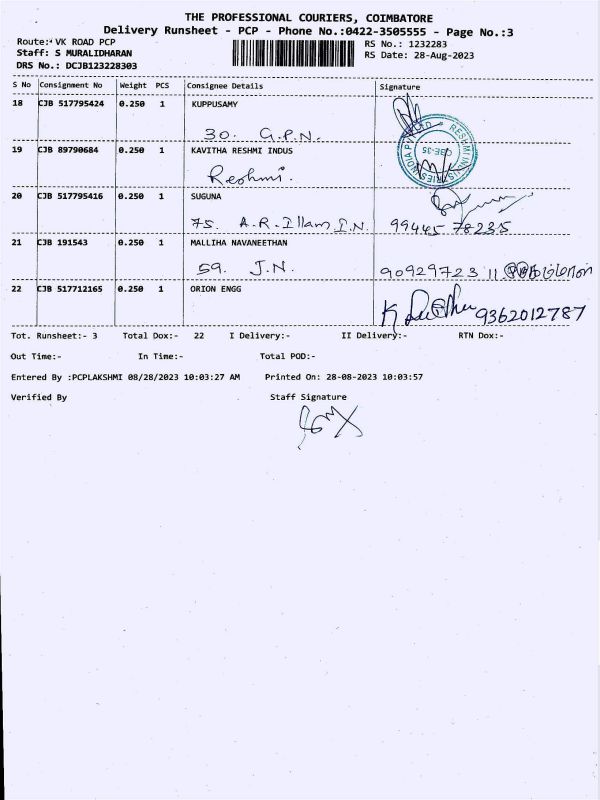 THE PROFESSIONAL COURIERS, COIMBATORE
Delivery Runsheet - PCP - Phone No.:0422-3505555 - Page No.:3
Route: VK ROAD PCP
RS No.: 1232283
Staff: S MURALIDHARAN
RS Date: 28-Aug-2023
DRS No.: DCJB123228303
S No Consignment No Weight PCS Consignee Details Signature
18 CJB 517795424 0.250 1 KUPPUSAMY
30. G.P.N.
19 CJB 89790684 0.250 1 KAVITHA RESHMI INDUS
Reshmi.
20 CJB 517795416 0.250 1 SUGUNA
75. A.R. Illam I.N. 99445 78235
21 CJB 191543 0.250 1 MALLIHA NAVANEETHAN
59. J.N. 90929723 11
22 CJB 517712165 0.250 1 ORION ENGG
9362012787
Tot. Runsheet:- 3 Total Dox:- 22 I Delivery:- II Delivery:- RTN Dox:-
Out Time:- In Time:- Total POD:-
Entered By :PCPLAKSHMI 08/28/2023 10:03:27 AM Printed On: 28-08-2023 10:03:57
Verified By Staff Signature